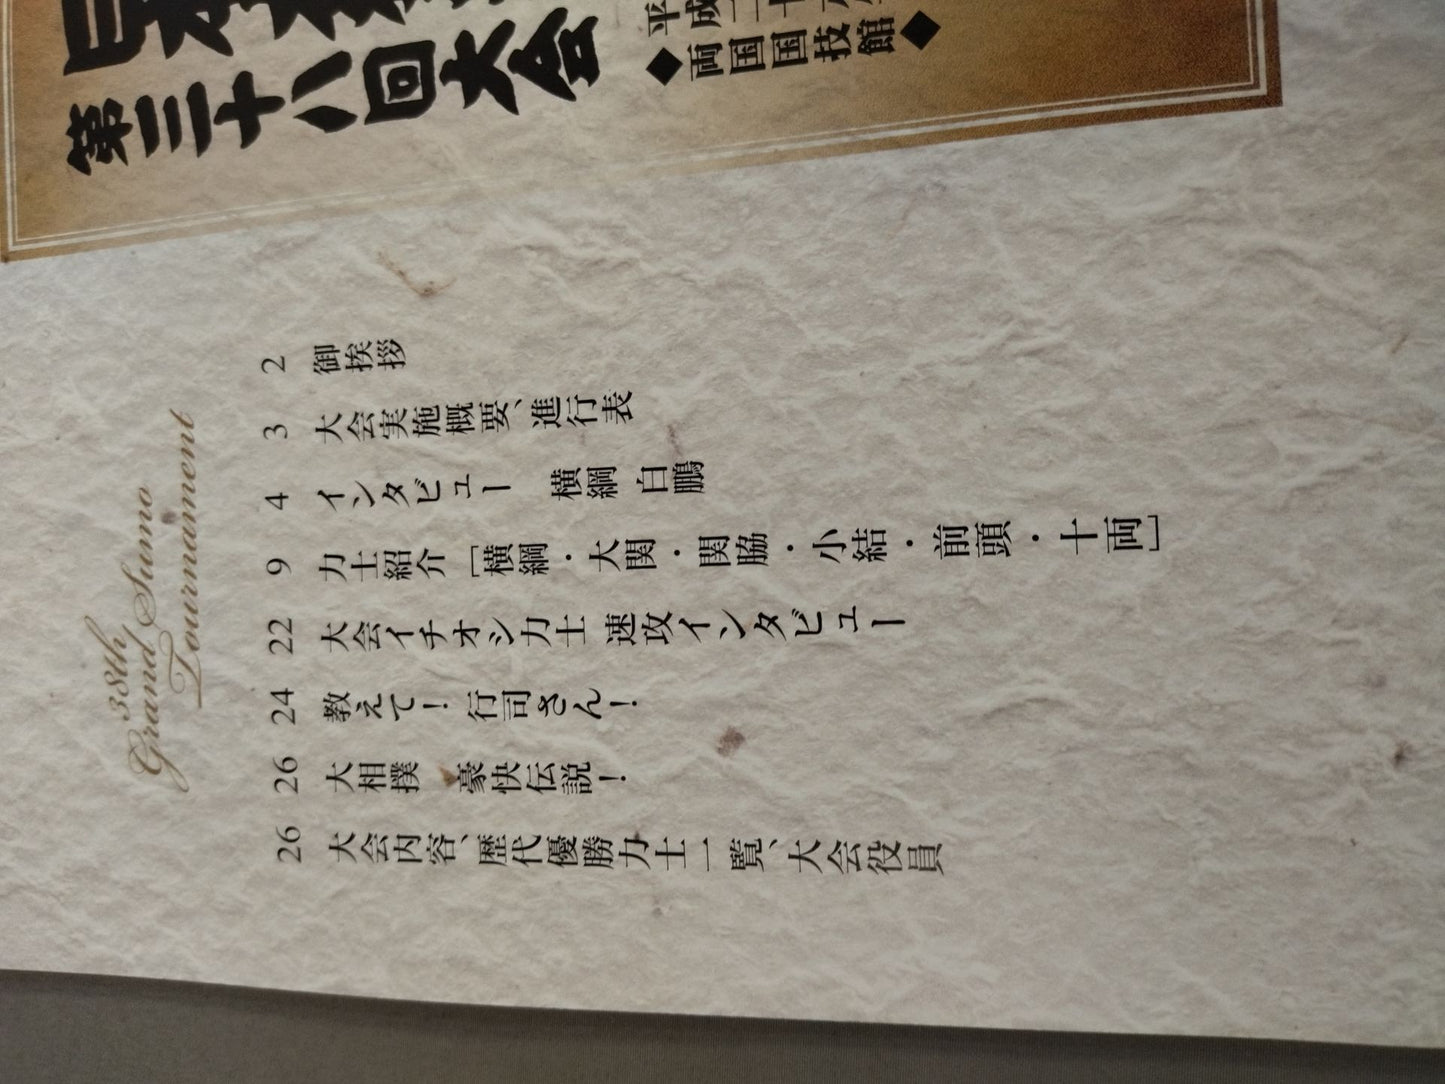 第三十八回大会
平成二十八
◆両国国技館◆
38th
Grand Sumo
Tournament
2 御挨拶
3 大会実施概要、進行表
4 インタビュー 横綱 白鵬
9 力士紹介［横綱・大関・関脇・小結・前頭・十両］
22 大会イチオシ力士 速攻インタビュー
24 教えて！ 行司さん！
26 大相撲 豪快伝説！
26 大会内容、歴代優勝力士一覧、大会役員